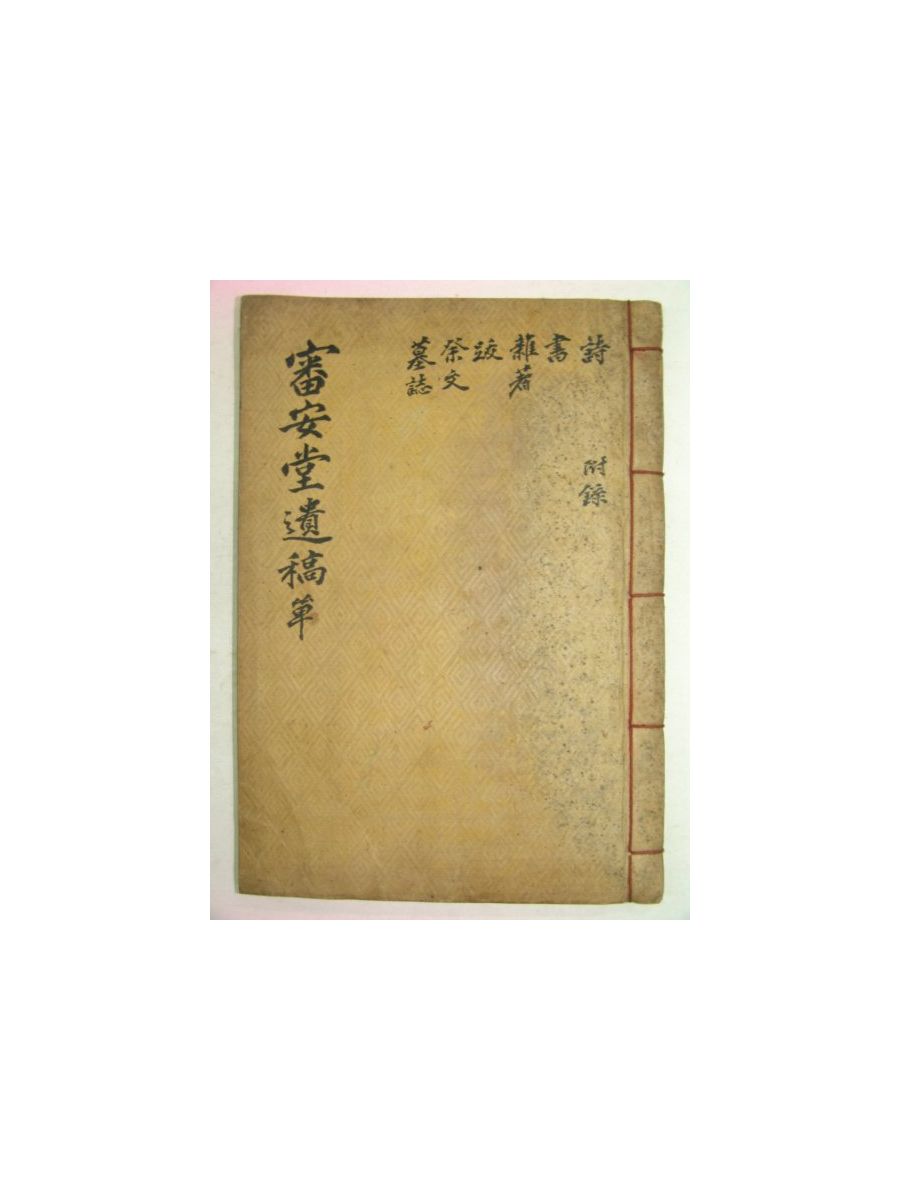 詩
附錄
書
雜著
跋
祭文
墓誌
審安堂遺稿 單